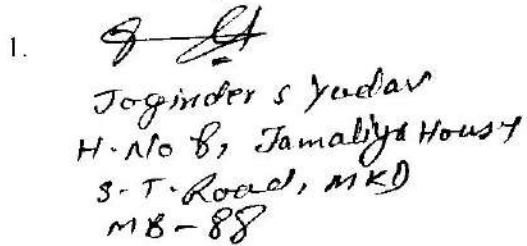 1.
Joginder S Yadav
H. No 8, Jamaliya House
S. T. Road, MKD
MB-88